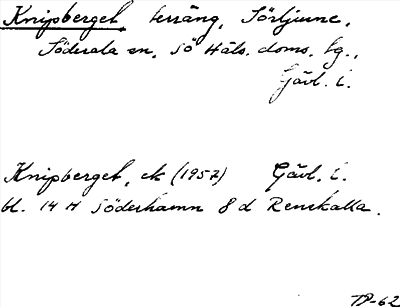 Knipberget, terräng, Sörljunne,
Söderala sn, Sö Häls. doms. tg.,
Gävl. l.
Knipberget, ek (1957) Gävl. l.
bl. 14 H Söderhamn 8 d Renskalla.
TP-62